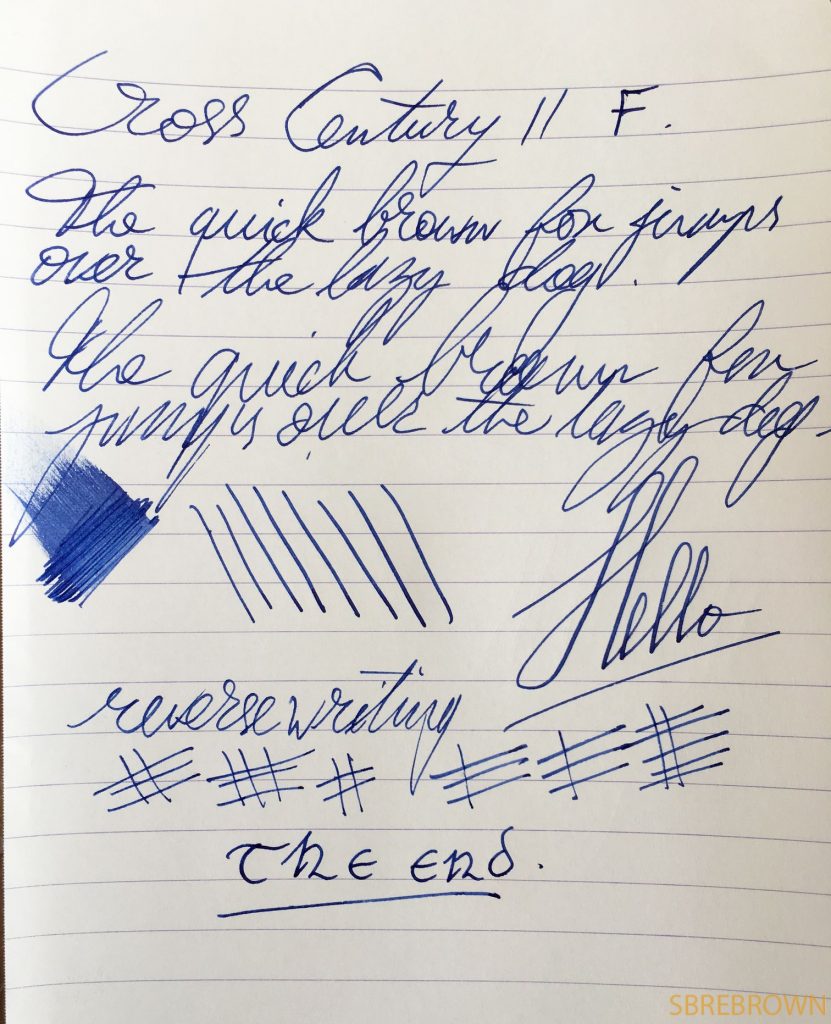 Cross Century II F.
The quick brown fox jumps
over the lazy dog.
The quick brown fox
jumps over the lazy dog.
Hello
reverse writing
The end.
SBREBROWN